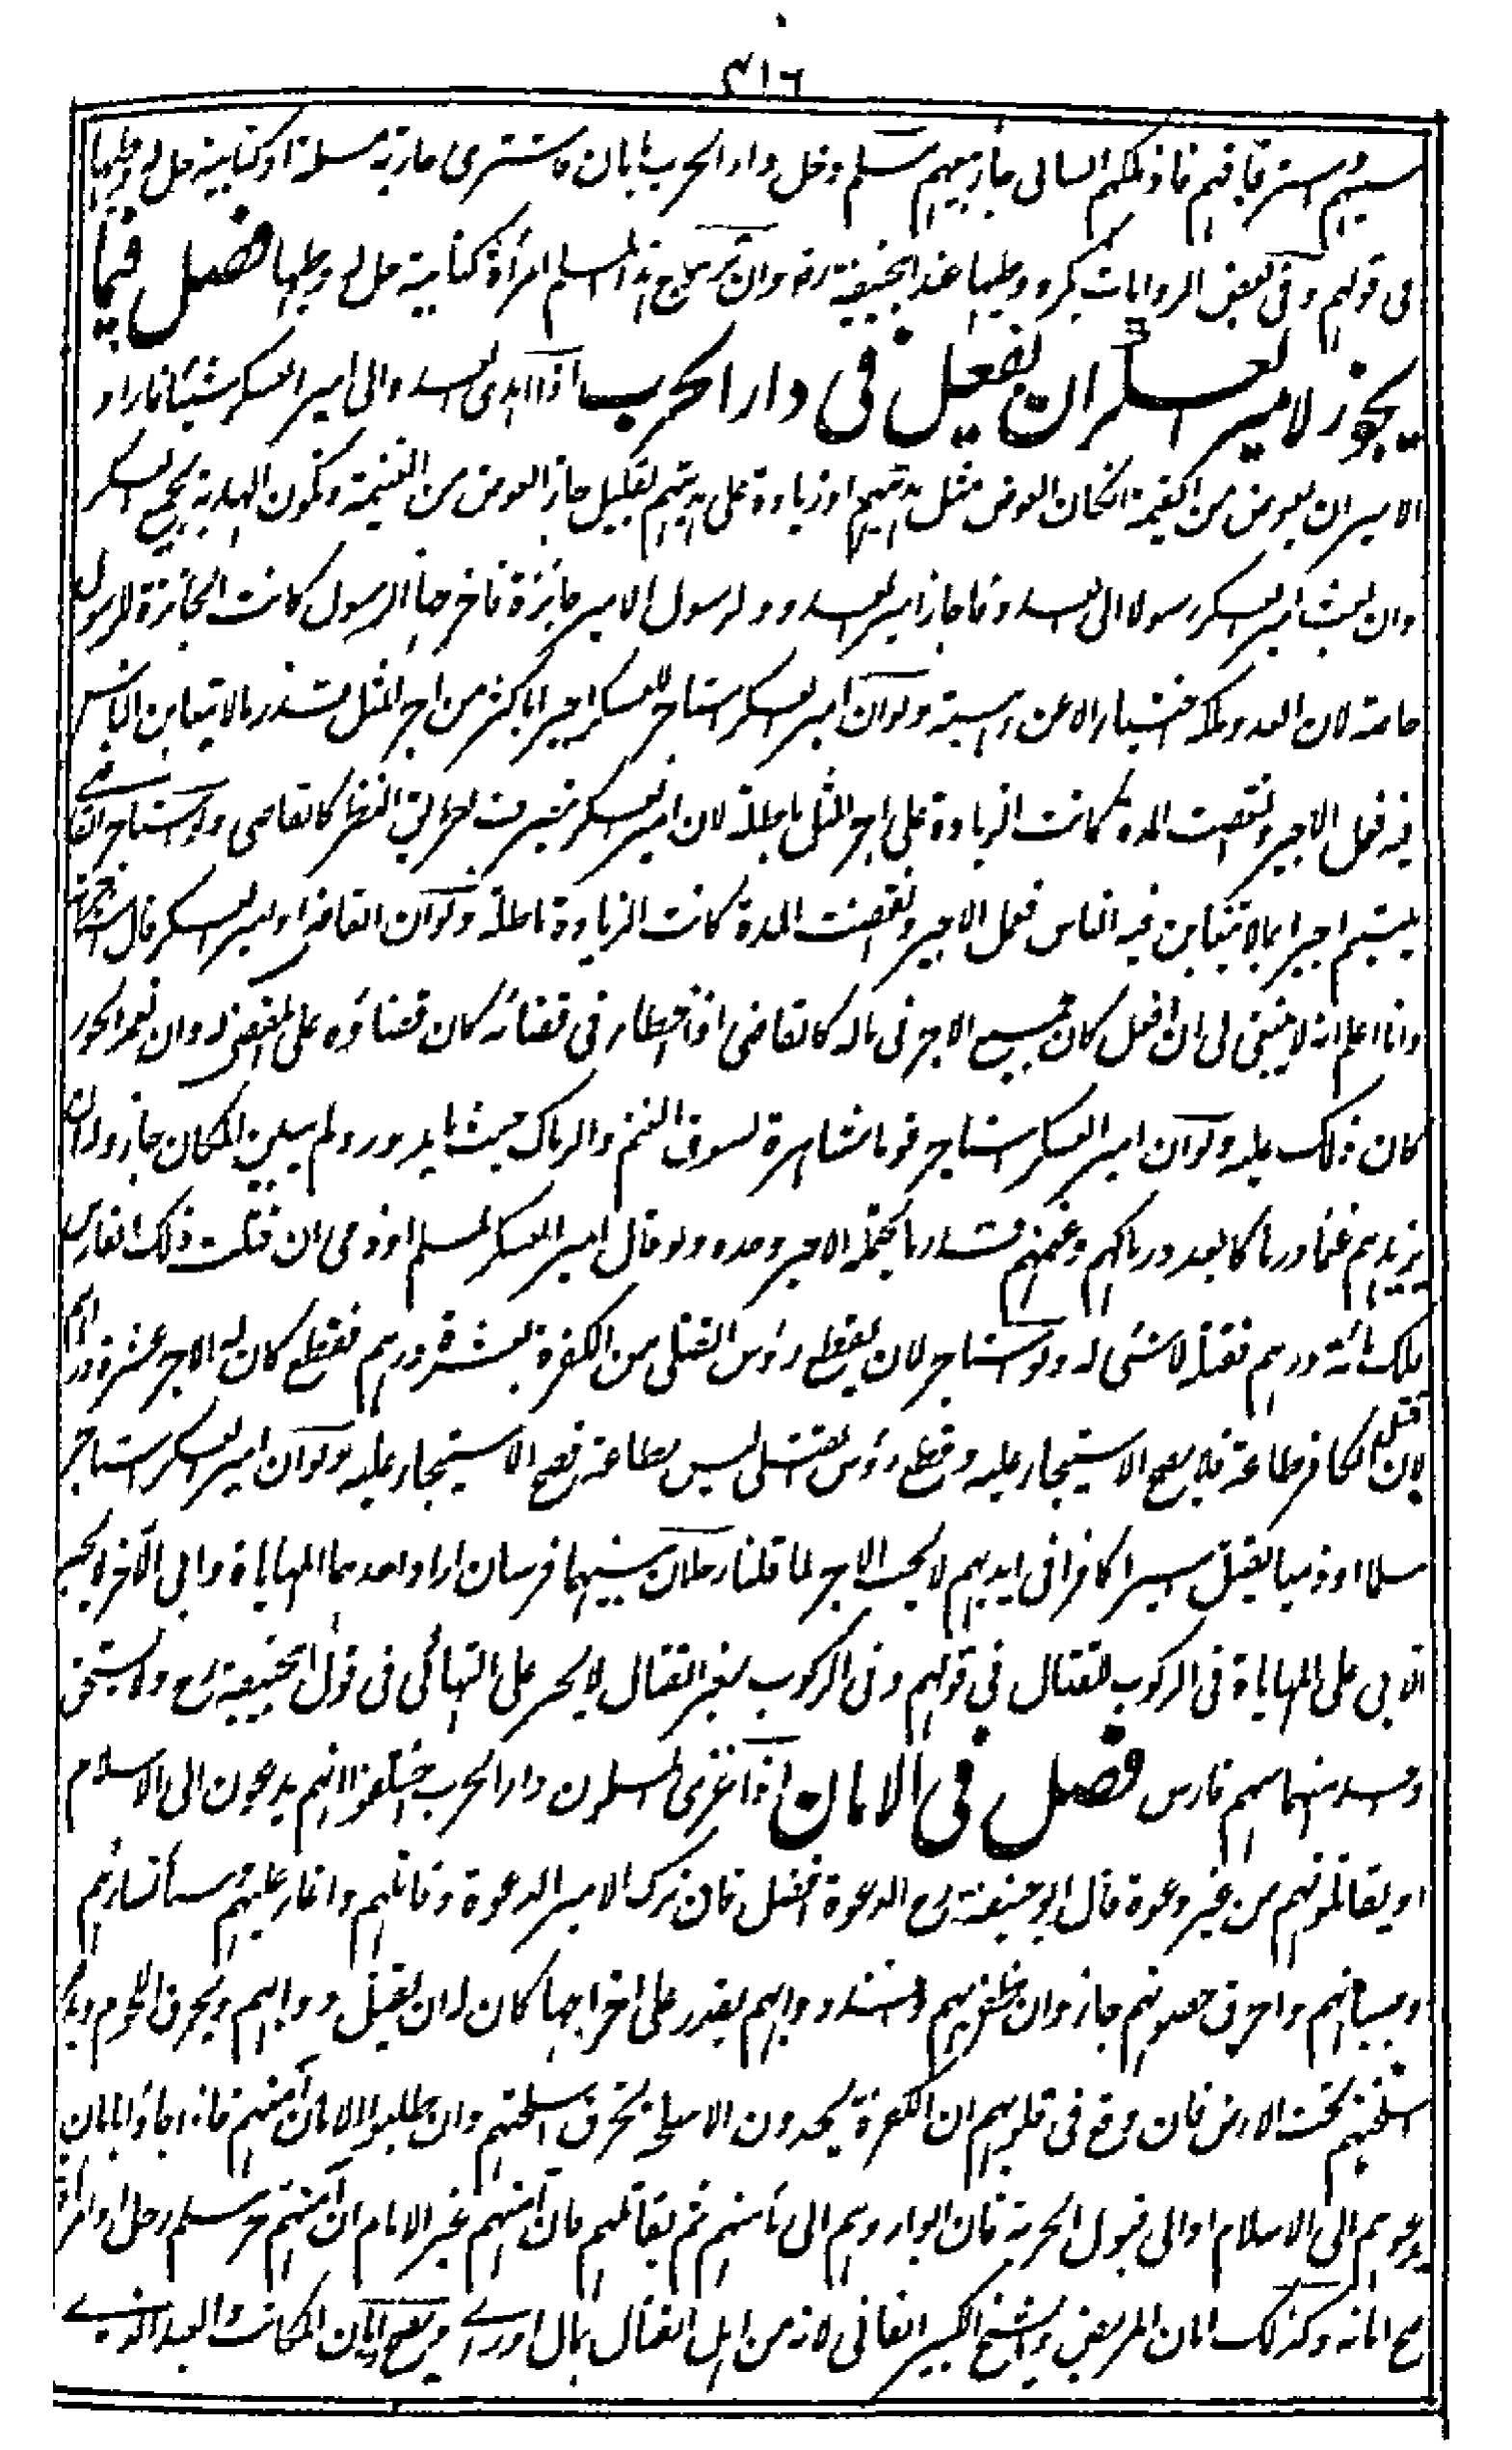 ٤١٦
سبيهم واسترقاقهم فاذا ملكهم السابى جاز بيعهم مسلم دخل دار الحرب بامان فاشترى جارية مسلمة او كتابية حل له وطيها
فى قولهم وفى بعض الروايات يكره وطيها عند ابيحنيفة رح وان تزوج هذا المسلم امرأة كتابية حل له وطيها فصل فيما
يجوز لامير العسكر ان يفعل فى دار الحرب اذا اهدى العدو الى امير العسكر شيئا فاراد
الامير ان يعوض من الغنيمة انكان العوض مثل هديتهم او زيادة على هديتهم بقليل جاز العوض من الغنيمة وتكون الهدية لجميع العسكر
وان بعث امير العسكر رسولا الى العدو فاجاز امير العدو ولرسول الامير جائزة فاخرجها الرسول كانت الجائزة للرسول
خاصة لان العدو ملكه اختيارا لا عن رهبة ولو ان امير العسكر استاجر للعسكر اجيرا باكثر من اجر المثل قدر ما لا يتغابن الناس
فيه فعمل الاجير وانقضت المدة كانت الزيادة على اجر المثل باطلة لان امير العسكر يتصرف بطريق النظر كالقاضى ولو استاجر القاضى
لليتيم اجيرا بما لا يتغابن فيه الناس فعمل الاجير وانقضت المدة كانت الزيادة باطلة ولو ان القاضى او امير العسكر قال استاجرته
وانا اعلم انه لا ينبغى لى ان افعل كان جميع الاجر فى ماله كالقاضى اذا اخطأ فى قضائه كان قضاؤه على المقضى له وان تعمد الجور
كان ذلك عليه ولو ان امير العسكر استاجر قوما مشاهرة لسوق الغنم والرماك حيث ما يدور ولم يبين المكان جاز وله ان
يزيدهم غنما ورماكا بعد ورماكهم وغنمهم قدر ما يحتمله الاجير وحده ولو قال امير العسكر لمسلم او ذمى ان قتلت ذلك الفارس
فلك مائة درهم فقتله لا شئ له ولو استاجر لان يقطع رؤس القتلى من الكفرة بعشرة دراهم فقطع كان له الاجر عشرة دراهم
لان قتل الكافر طاعة فلا يصح الاستيجار عليه وقطع رؤس القتلى ليس بطاعة فصح الاستيجار عليه ولو ان امير العسكر استاجر
مسلما او ذميا ليقتل اسيرا كافرا فى ايديهم لا يجب الاجر لما قلنا رجلان بينهما فرسان اراد احدهما المهاياة وابى الآخر لا يجبر
الابى على المهاياة فى الركوب للقتال فى قولهم وفى الركوب بغير القتال لا يجبر على التهائى فى قول ابيحنيفة رح ولا يستحق
واحد منهما سهم فارس فصل فى الامان اذا غزى المسلمون دار الحرب اختلفوا انهم يدعون الى الاسلام
او يقاتلونهم من غير دعوة قال ابو حنيفة رح الدعوة افضل فان ترك الامير الدعوة وقاتلهم واغار عليهم وسبا نساءهم
او صبيانهم واحرق حصونهم جاز وان ظفر بهم واخذ دوابهم ولم يقدر على اخراجها كان له ان يقتل دوابهم ويحرق اللحوم ويدفن
اسلحتهم تحت الارض فان وقع فى قلوبهم ان الكفرة يجدون الاسلحة يحرق اسلحتهم وان طلبوا الامان آمنهم فاذا جاؤا بالامان
يدعوهم الى الاسلام او الى قبول الجزية فان ابوا ردهم الى مامنهم ثم يقاتلهم فان آمنهم غير الامام ان آمنهم حر مسلم رجل او امرأة
صح امانه وكذلك امان المريض والشيخ الكبير الفانى لانه من اهل القتال بمال او رأى ويصح امان المكاتب والعبد الذى